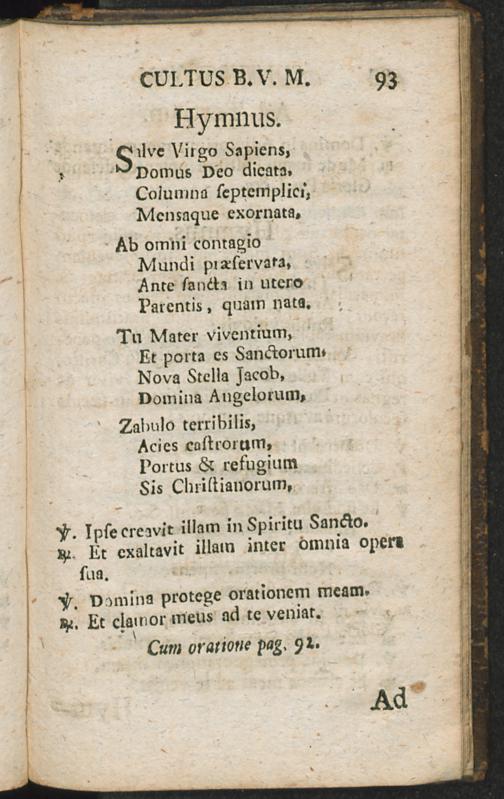 CULTUS B. V. M. 93
Hymnus.
Salve Virgo Sapiens,
Domus Deo dicata,
Columna ſeptemplici,
Mensaque exornata,
Ab omni contagio
Mundi præſervata,
Ante ſancta in utero
Parentis, quam nata.
Tu Mater viventium,
Et porta es Sanctorum,
Nova Stella Jacob,
Domina Angelorum,
Zabulo terribilis,
Acies caſtrorum,
Portus & refugium
Sis Chriſtianorum,
℣. Ipſe creavit illam in Spiritu Sancto.
℟. Et exaltavit illam inter omnia opera
ſua.
℣. Domina protege orationem meam.
℟. Et clamor meus ad te veniat.
Cum oratione pag. 92.
Ad